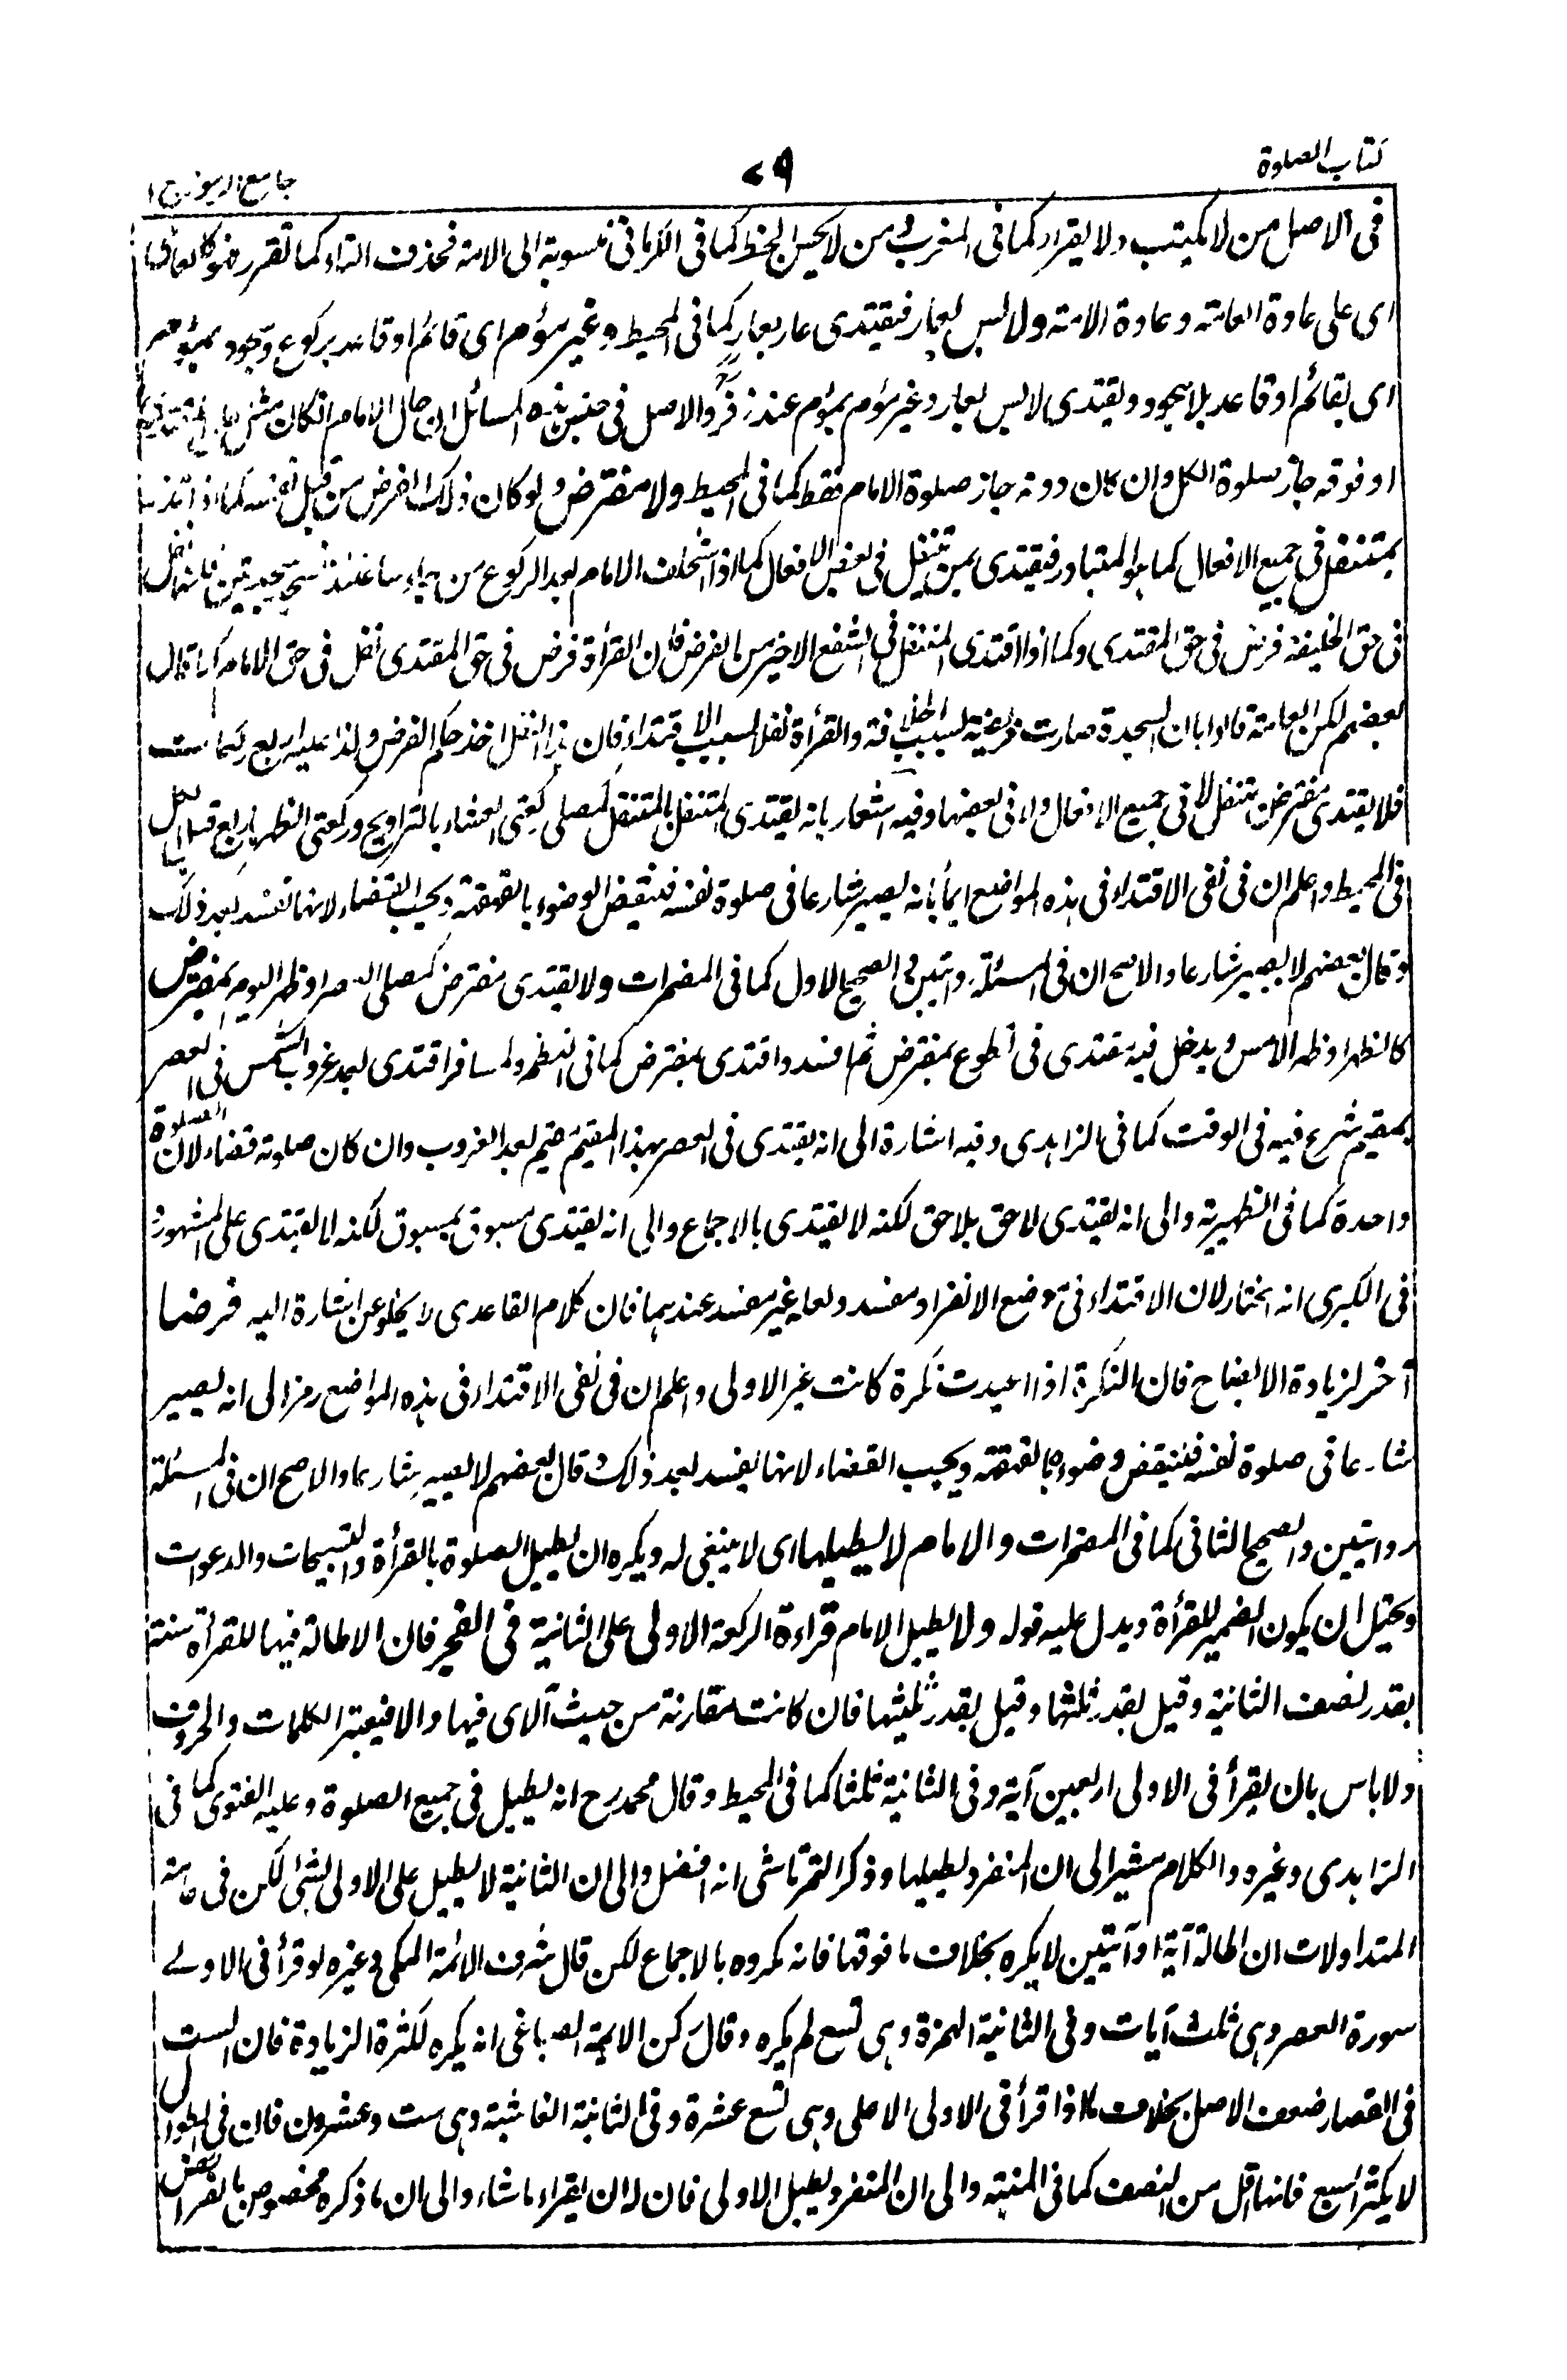 كتاب الصلوة
٧٩
جامع الرموز ج ١
فى الاصل من لا يكتب ولا يقرأ كما فى المغرب ومن لا يحسن الخط كما فى الكرمانى منسوبة الى الامة فحذفت التاء كما تقرر
اى على عادة العامة وعادة الامة ولا لابس بعار فيقتدى عار بعار كما فى المحيط وغير مؤم اى قائم او قاعد بركوع وسجود بمؤم
اى بقائم او قاعد بلا سجود ويقتدى لابس بعار وغير مؤم بمؤم عند زفر والاصل فى جنس هذه المسائل ان حال الامام ان كان مثل
او فوقه جاز صلوة الكل وان كان دونه جاز صلوة الامام فقط كما فى المحيط ولا مفترض ولو كان ذلك الفرض من قبل نفسه كما اذا نذر
بمتنفل فى جميع الافعال كما هو المتبادر فيقتدى بمن تنفل فى بعض الافعال كما اذا استخلف الامام بعد الركوع من جاء ساعتئذ
فى حق الخليفة فرض فى حق المقتدى وكما اذا اقتدى المتنفل فى الشفع الاخير من الفرض فان القرأة فرض فى حق المقتدى نفل فى حق الامام كما قال
بعضهم لكن العامة قالوا بان السجدة صارت فريضة بسبب الخلافة والقرأة نفلا بسبب الاقتداء فان هذا النفل اخذ حكم الفرض ولذا عليه اربع ركعات
فلا يقتدى مفترض بمتنفل لا فى جميع الافعال ولا فى بعضها وفيه اشعار بانه يقتدى المتنفل بالمتنفل كمصلى ركعتى العشاء بالتراويح وركعتى الظهر باربع قبلها
فى المحيط واعلم ان فى نفى الاقتداء فى هذه المواضع ايماء بانه يصير شارعا فى صلوة نفسه فينتقض الوضوء بالقهقهة ويجب القضاء لانها تفسد بعد ذلك
وقال بعضهم لا يصير شارعا والاصح ان فى المسئلة روايتين والصحيح الاول كما فى المضمرات ولا يقتدى مفترض كمصلى العصر او ظهر اليوم بمفترض
كالظهر او ظهر الامس ويدخل فيه مقتدى فى تطوع بمفترض ثم افسد واقتدى بمفترض كما فى النظم ولمسافر اقتدى بعد غروب الشمس فى العصر
بمقيم شرع فيه فى الوقت كما فى الزاهدى وفيه اشارة الى انه يقتدى فى العصر بهذا المقيم مقيم بعد الغروب وان كان صلوته قضاء لان الصلوة
واحدة كما فى الظهيرية والى انه يقتدى لاحق بلاحق لكنه لا يقتدى بالاجماع والى انه يقتدى مسبوق بمسبوق لكنه لا يقتدى على المشهور و
فى الكبرى انه المختار لان الاقتداء فى موضع الانفراد مفسد ولعله غير مفسد عندهما فان كلام القاعدى لا يخلو عن اشارة اليه فرضا
آخر لزيادة الايضاح فان النكرة اذا اعيدت نكرة كانت غير الاولى واعلم ان فى نفى الاقتداء فى هذه المواضع رمز الى انه يصير
شارعا فى صلوة نفسه فينتقض وضوءه بالقهقهة ويجب القضاء لانها يفسد بعد ذلك قال بعضهم لا يصير شارعا والاصح ان فى المسئلة
روايتين والصحيح الثانى كما فى المضمرات والامام لا يطيلها اى لا ينبغى له ويكره ان يطيل الصلوة بالقرأة والتسبيحات والدعوات
ويحتمل ان يكون الضمير للقرأة ويدل عليه قوله ولا يطيل الامام قراءة الركعة الاولى على الثانية فى الفجر فان الاطالة فيها للقرأة سنة
بقدر نصف الثانية وقيل بقدر ثلثها وقيل بقدر ثلثيها فان كانت متقارنة من حيث الآى فيها والا فيعتبر الكلمات والحروف
ولا باس بان يقرأ فى الاولى اربعين آية وفى الثانية ثلثا كما فى المحيط وقال محمد رح انه يطيل فى جميع الصلوة وعليه الفتوى كما فى
الزاهدى وغيره والكلام مشير الى ان المنفرد يطيلها وذكر التمرتاشى انه افضل والى ان الثانية لا يطيل على الاولى بشئ لكن فى عامة
المتداولات ان اطالة آية او آيتين لا يكره بخلاف ما فوقها فانه مكروه بالاجماع لكن قال شرف الائمة المكى وغيره لو قرأ فى الاولى
سورة العصر وهى ثلث آيات وفى الثانية الهمزة وهى تسع لم يكره وقال ركن الائمة الصباغى انه يكره لكثرة الزيادة فان الست
فى القصار ضعف الاصل بخلاف ما اذا قرأ فى الاولى الاعلى وهى تسع عشرة وفى الثانية الغاشية وهى ست وعشرون فان فى الطوال
لا يكثر السبع فانها اقل من النصف كما فى المنية والى ان المنفرد يطيل الاولى فان له ان يقرأ ما شاء والى ان ما ذكره مخصوص بالفرائض